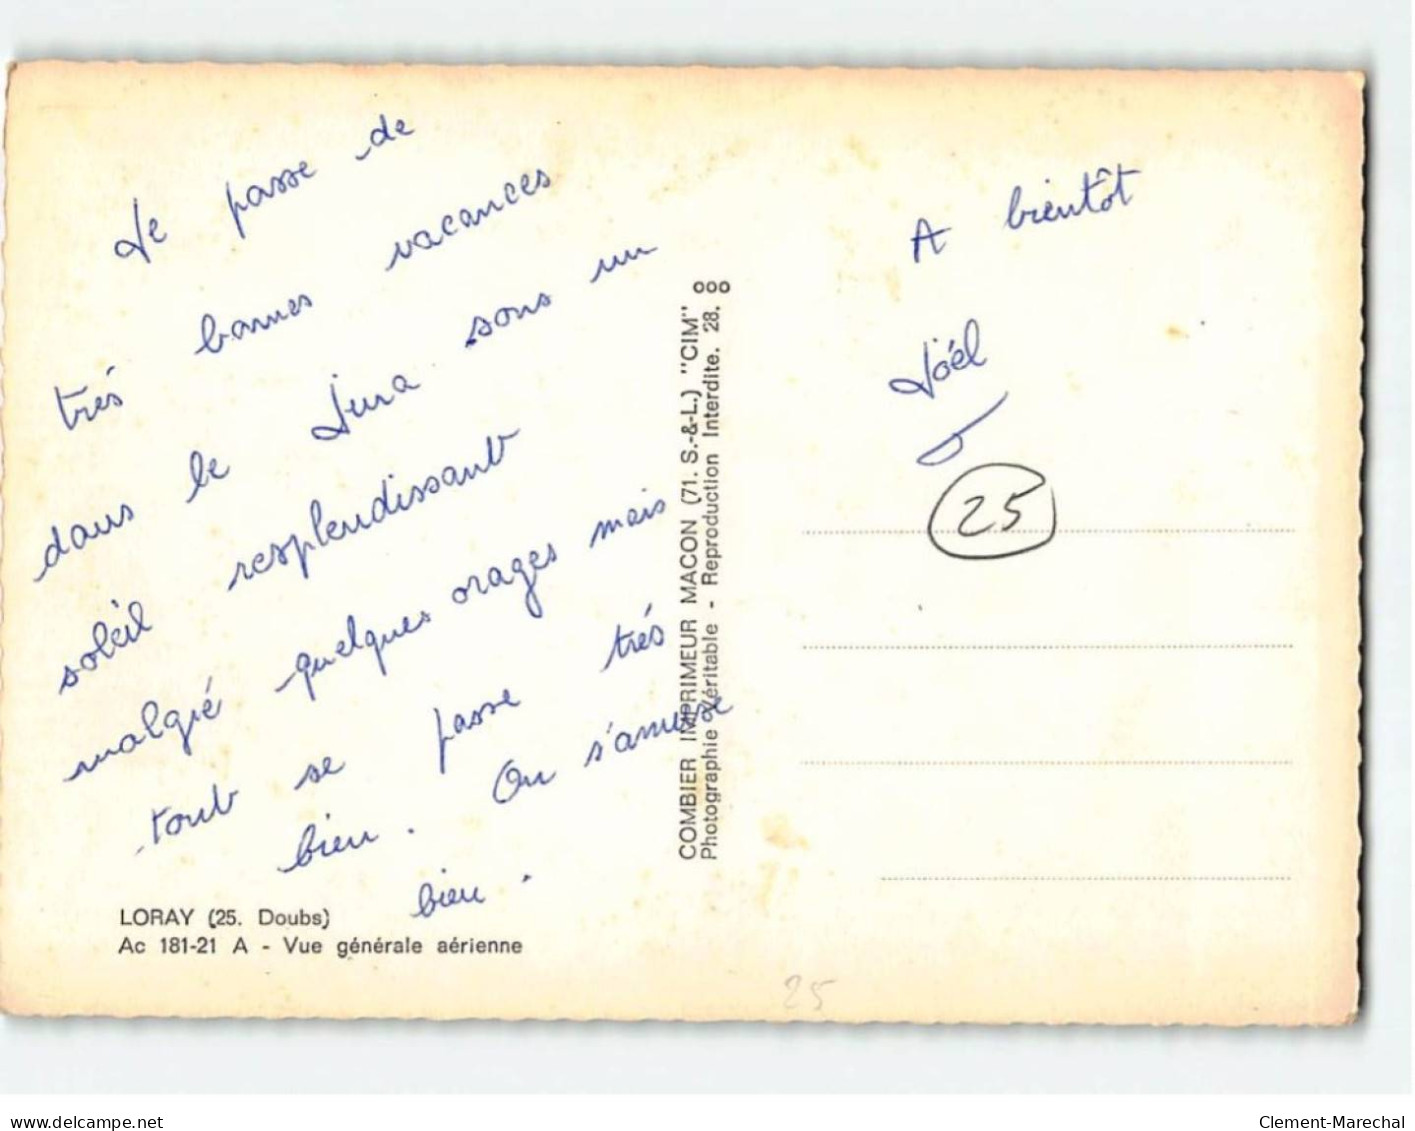 Je passe de
trés bonnes vacances
dans le Jura sous un
soleil resplendissant
malgré quelques orages mais
tout se passe trés
bien. On s'amuse
bien.
LORAY (25. Doubs)
Ac 181-21 A - Vue générale aérienne
COMBIER IMPRIMEUR MACON (71. S.-&-L.) "CIM"
Photographie Véritable - Reproduction Interdite. 28.
A bientôt
Joël
25
25
delcampe.net
Clement-Marechal